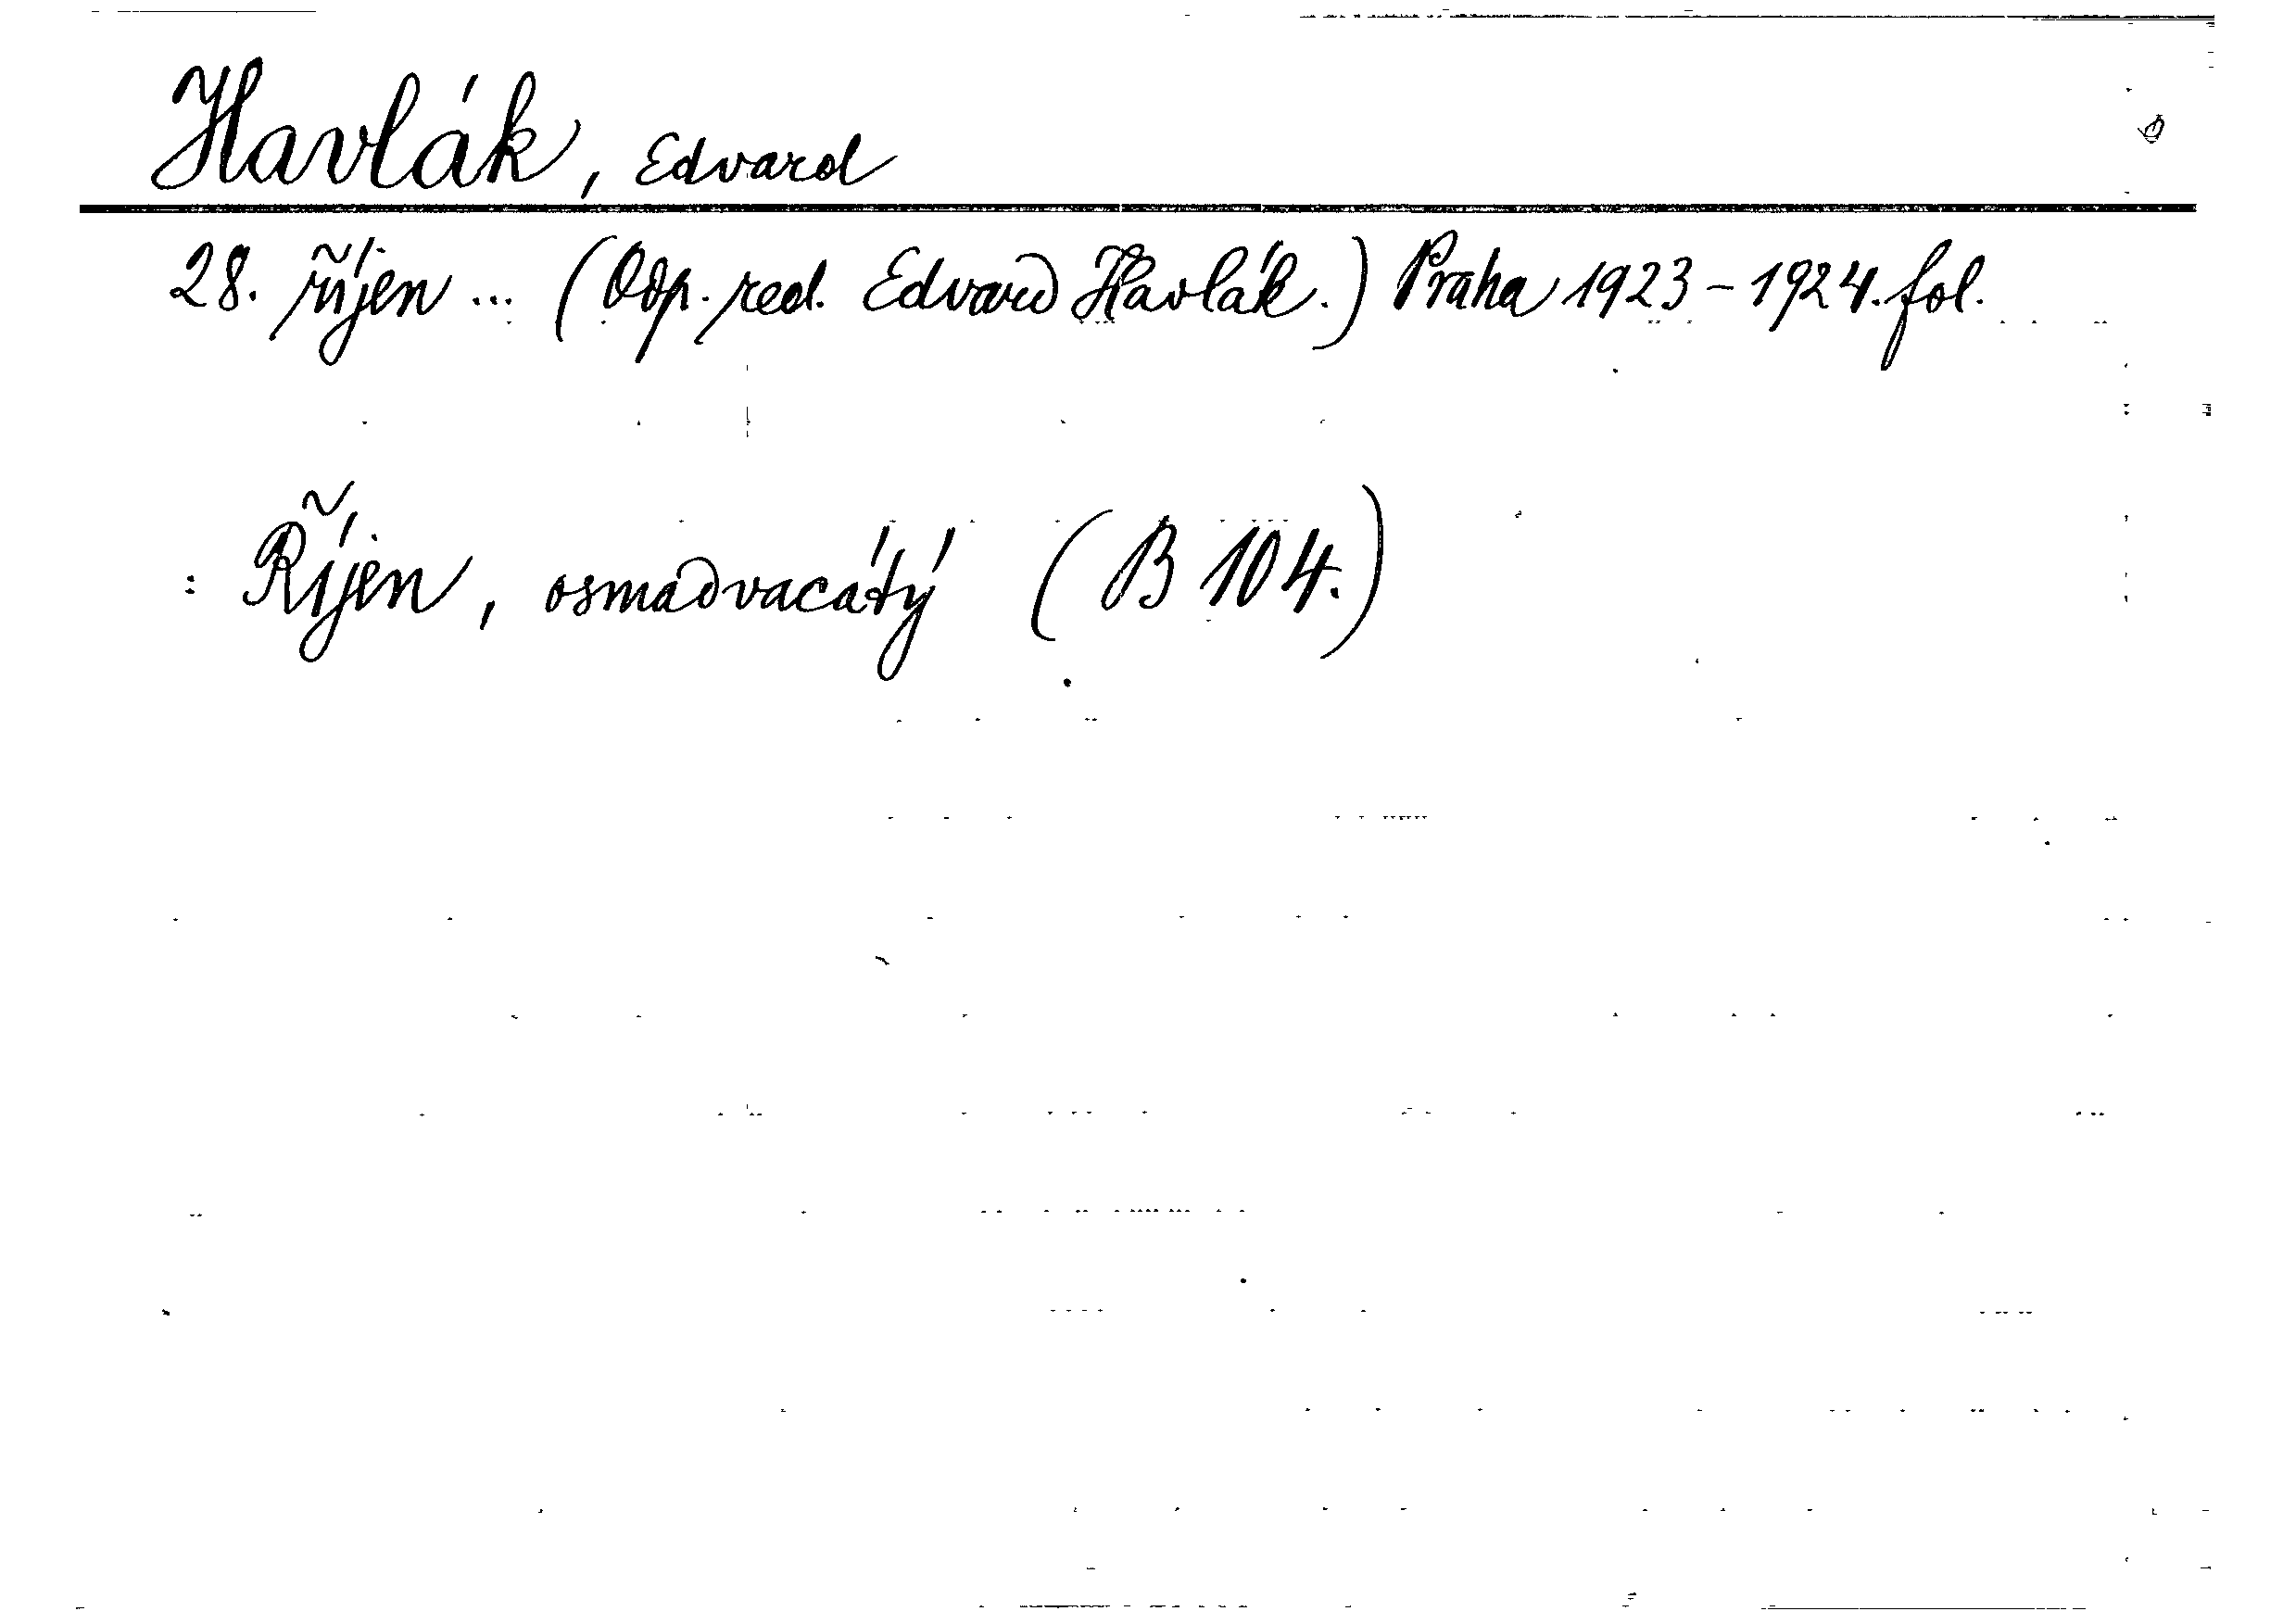 Havlák, Edvard
28. říjen ... (Odp. red. Edvard Havlák.) Praha 1923-1924. fol.
: Říjen, osmadvacátý (B 104.)